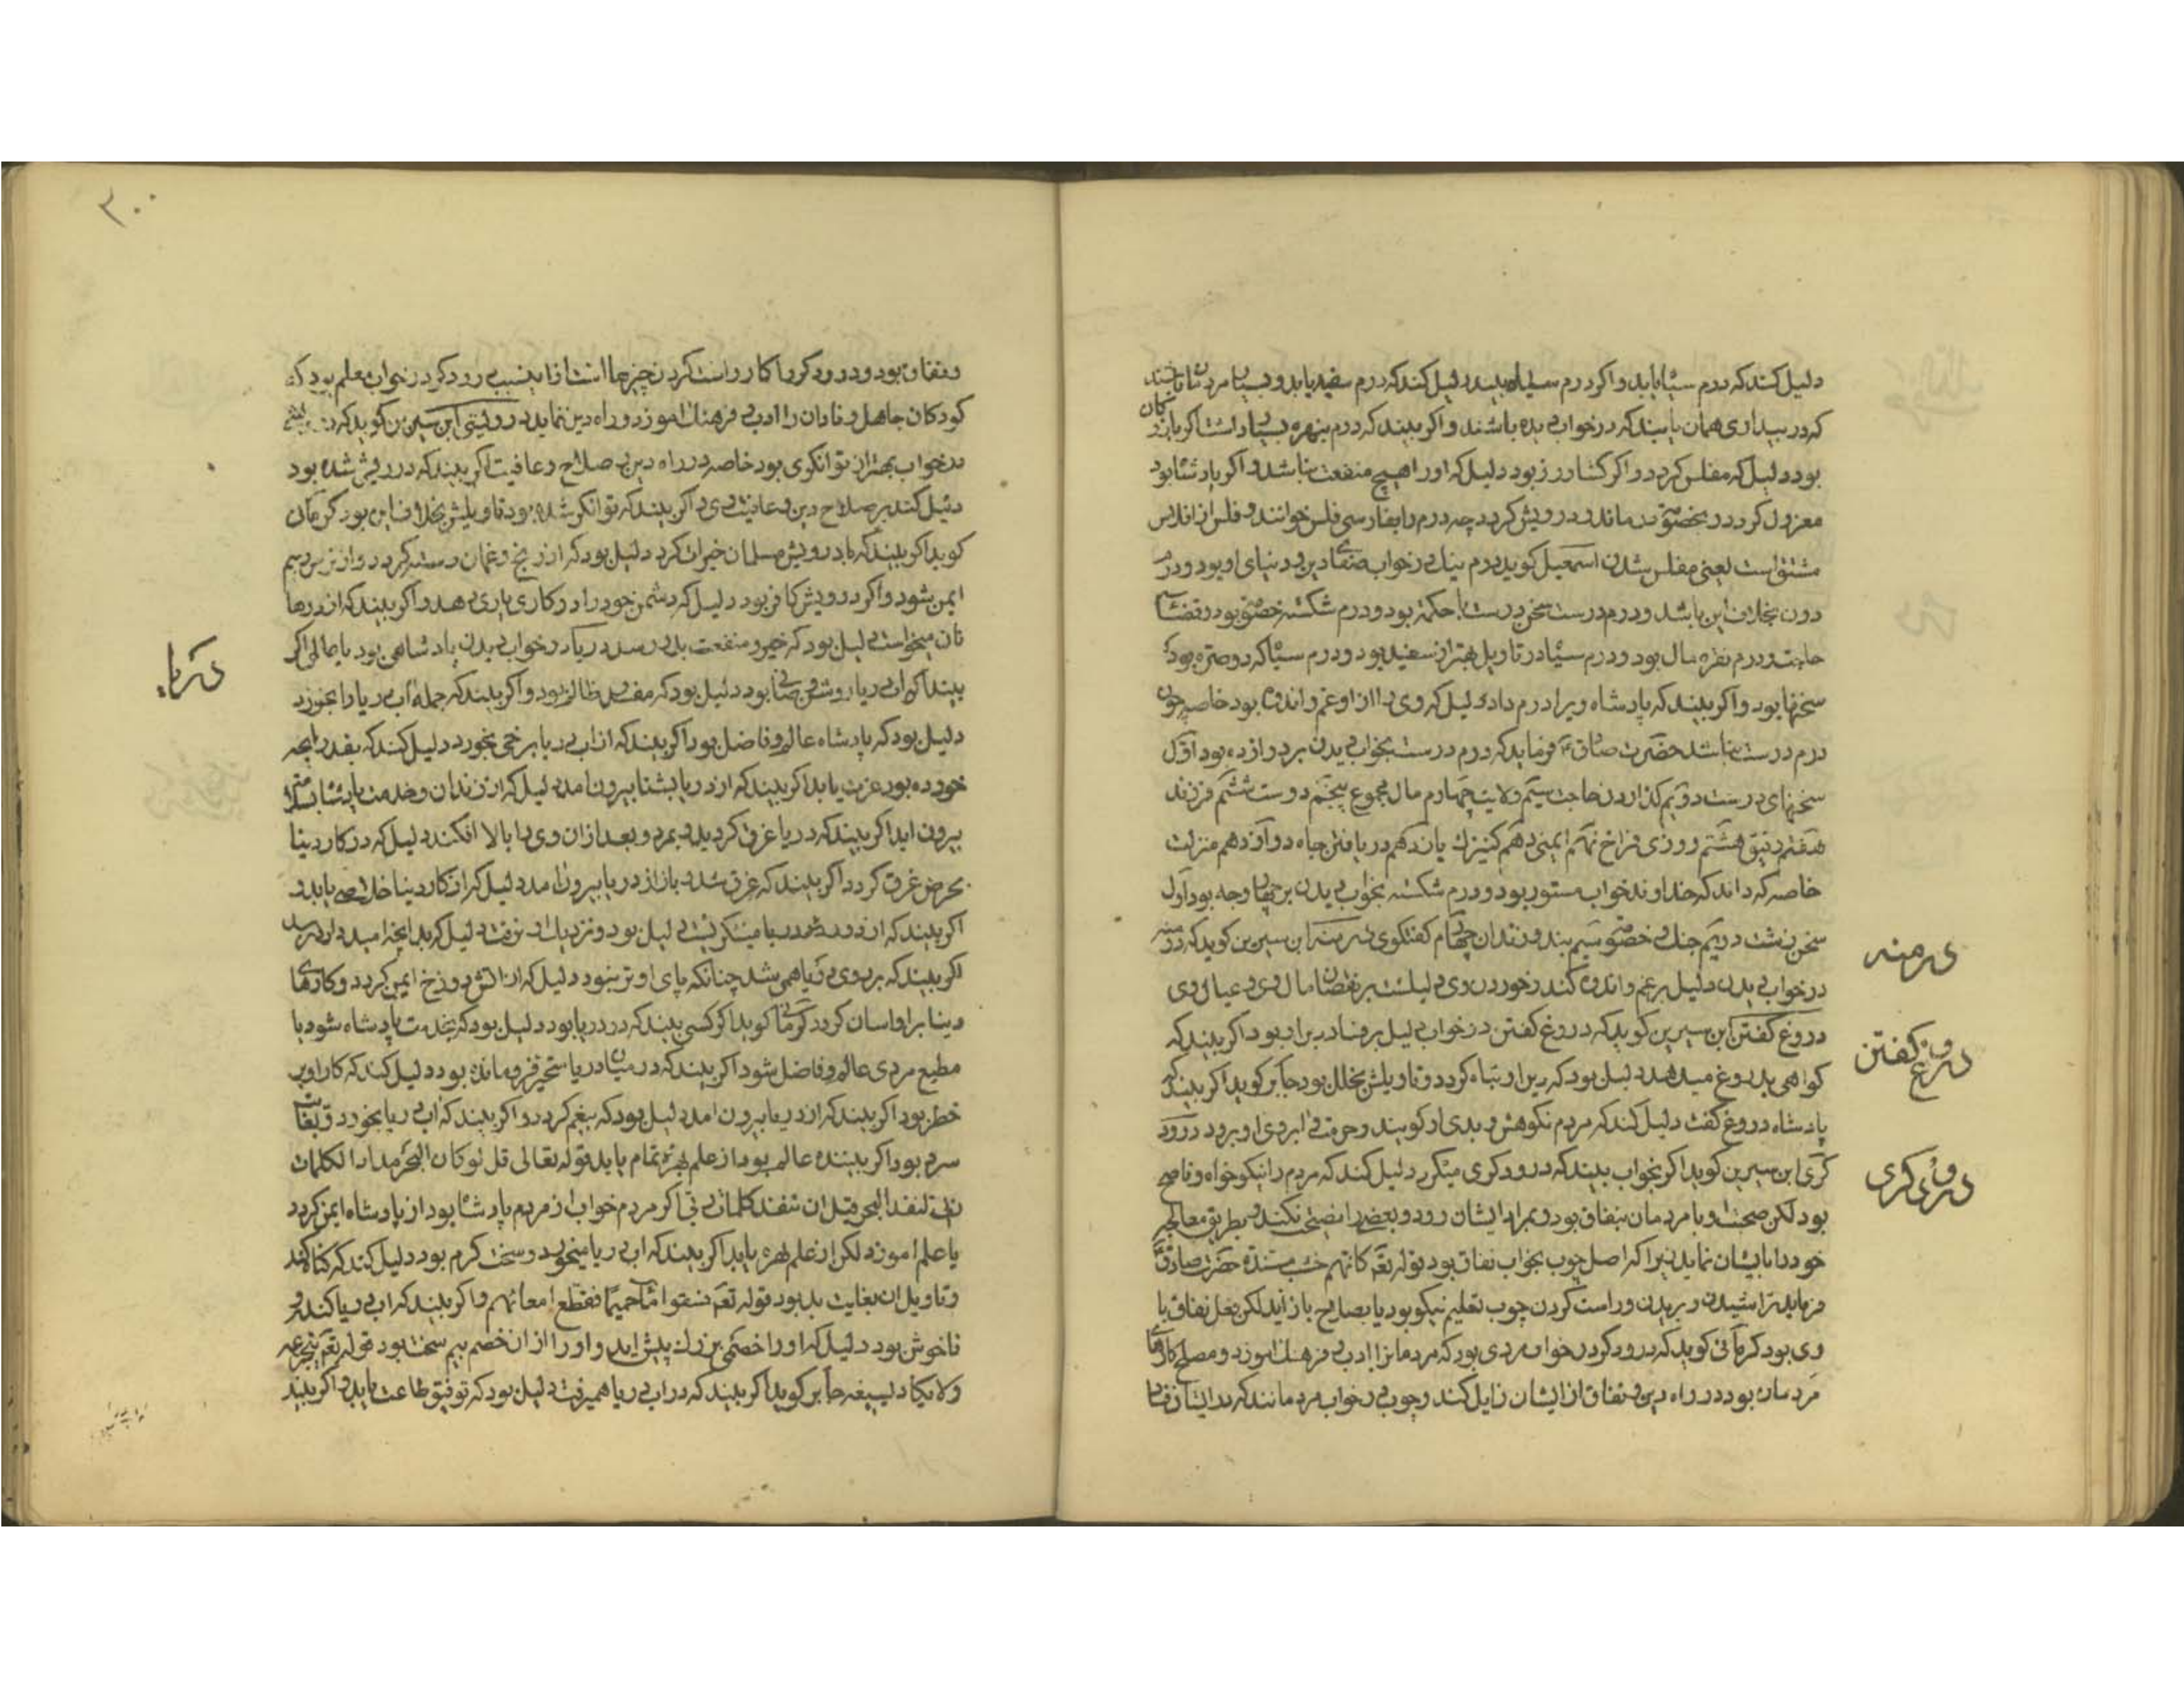 دلیل کند که درم سیاه یابد و اکر درم سیاه بیند دلیل کند که درم سفید یابد و بسیار مردمان باشند
که در بیداری همان یابند که در خواب دیده باشند و اکر بیند که درم بنهره بسیار داشت اکر بازرکان
بود دلیل که مفلس کردد و اکر کشاورز بود دلیل که او را هیچ منفعت نباشد و اکر پادشا بود
معزول کردد و بخصومت درماند و درویش کردد چه درم را بفارسی فلس خوانند و فلس از افلاس
مشتق است یعنی مفلس شدن اسمعیل کوید درم نیک در خواب صفای دین و دنیای او بود و درم
دون بخلاف این باشد و درم درست سخن درست با حکمة بود و درم شکسته خصومت بود و قضای
حاجت و درم نقره مال بود و درم سیاه در تاویل بهتر از سفید بود و درم سیاه که دو صره بود
سخنها بود و اکر بیند که پادشاه ویرا درم داد دلیل که وی را از او غم و اندوه بود خاصه چون
درم درست نباشد حضرت صادق ع فرماید که درم درست بخواب دیدن بر دوازده بود اول
سخنهای درست دویم کذاردن حاجت سیم ولایت چهارم مال مجموع پنجم دوست ششم فرزند
هفتم رفیق هشتم روزی فراخ نهم ایمنی دهم کنیزک یازدهم دریافتن جاه دوازدهم منزلت
خاصه که داند که خداوند خواب مستور بود و درم شکسته بخواب دیدن بر چهار وجه بود اول
سخن زشت دویم جنک و خصومت سیم بند و زندان چهارم کفتکوی درمنه ابن سیرین کوید که درمنه
در خواب دیدن دلیل بر غم و اندوه کند و خوردن وی دلیلست بر نقصان مال وی و عیال وی
دروغ کفتن ابن سیرین کوید که دروغ کفتن در خواب دلیل بر فساد دین او بود و اکر بیند که
کواهی بدروغ میدهد دلیل بود که دین او تباه کردد و تاویلش بخلل بود جابر کوید اکر بیند که
پادشاه دروغ کفت دلیل کند که مردم نکوهش و بدی او کویند و حرمت و ابروی او برود درود
کری ابن سیرین کوید اکر بخواب بیند که درودکری میکرد دلیل کند که مردم را نیکو خواه و ناصح
بود لکن صحبت او با مردمان بنفاق بود و بمراد ایشان رود و بعضی را نصیحت نکند و بطریق معالجه
خود را بایشان نماید زیرا که اصل چوب بخواب نفاق بود قوله تع کانهم خشب مسندة حضرت صادق ع
فرماید تراشیدن و بریدن و راست کردن چوب تعلیم نیکو بود یا بصلاح باز آید لکن بفعل نفاق با
وی بود کرمانی کوید که درودکر در خواب مردی بود که مردمانرا ادب و فرهنک اموزد و مصلح کارهای
مردمان بود در راه دین و نفاق از ایشان زایل کند و چوب در خواب مردمانند که بد ایشان
درمنه
دروغ کفتن
درودکری
۳۰۰
و نفاق بود و درودکر را کار راست کردن چیزها است از این سبب درودکر در خواب معلم بود که
کودکان جاهل و نادان را ادب و فرهنک اموزد و راه دین نماید درویشی ابن سیرین کوید که درویشی
در خواب بهتر از توانکری بود خاصه در راه دین و صلاح و عافیت اکر بیند که درویش شده بود
دلیل کند بر صلاح دین و عافیت وی و اکر بیند که توانکر شده بود تاویلش بخلاف این بود کرمانی
کوید اکر بیند که با درویش مسلمان خیرات کرد دلیل بود که از رنج و غمان رسته کردد و از ترس و بیم
ایمن شود و اکر درویش کافر بود دلیل که دشمن خود را در کاری یاری دهد و اکر بیند که از درها
نان میخواست دلیل بود که خیر و منفعت بدو رسد دریا در خواب دیدن پادشاهی بود یا عالم اکر
بیند که آب دریا روشن و صافی بود دلیل بود که مفسد ظالم بود و اکر بیند که جمله آب دریا را بخورد
دلیل بود که پادشاه عالم و فاضل بود اکر بیند که از آب دریا برخی بخورد دلیل کند که بقدر آنچه
خورده بود عزت یابد اکر بیند که از دریا بشنا بیرون امد دلیل که از زندان و خدمت پادشا بسلامت
بیرون اید اکر بیند که در دریا غرق کردید و بمرد و بعد از ان وی را بالا افکند دلیل که در کار دنیا
بحرص غرق کردد اکر بیند که غرق شد و باز از دریا بیرون امد دلیل که از کار دنیا خلاصی یابد و
اکر بیند که از دور در دریا مینکریست دلیل بود و نزدیک او نرفت دلیل که بدانچه امید دارد برسد
اکر بیند که بر روی دریا همی شد چنانکه پای او تر نبود دلیل که از اتش دوزخ ایمن کردد و کارهای
دنیا بر او اسان کردد کرمانی کوید اکر کسی بیند که در دریا بود دلیل بود که بخدمت پادشاه شود یا
مطیع مردی عالم و فاضل شود اکر بیند که در میان دریا متحیر فرو مانده بود دلیل کند که کار او پر
خطر بود اکر بیند که از دریا بیرون امد دلیل بود که بیغم کردد و اکر بیند که اب دریا بخورد و بغایت
سرد بود اکر بیننده عالم بود از علم بهره تمام یابد قوله تعالی قل لو کان البحر مدادا لکلمات
ربی لنفد البحر قبل ان تنفد کلمات ربی اکر مردم خواب از مردم پادشا بود از پادشاه ایمن کردد
یا علم اموزد لکن از علم بهره یابد اکر بیند که اب دریا میخورد و سخت کرم بود دلیل کند که کناه کند
و تاویل ان بغایت بد بود قوله تع فسقوا ماء حمیما فقطع امعائهم و اکر بیند که اب دریا کنده و
ناخوش بود دلیل که او را خصمی بزرک پیش اید و او را از ان خصم بیم سخت بود قوله تع یتجرعه
ولا یکاد یسیغه جابر کوید اکر بیند که در اب دریا همیرفت دلیل بود که توفیق طاعت یابد و اکر بیند
دریا